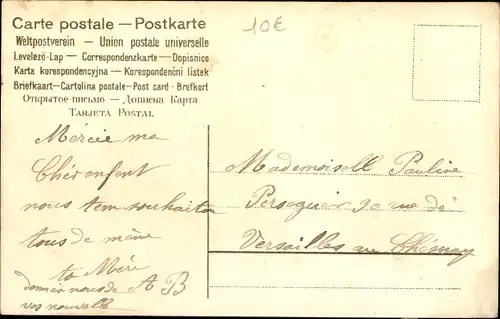 Carte postale — Postkarte
10€
Weltpostverein — Union postale universelle
Levelező-Lap — Correspondenzkarte — Dopisnice
Karta korespondencyjna — Korespondenční lístek
Briefkaart — Cartolina postale - Post card - Brefkort
Открытое письмо — Дописна Карта
Tarjeta Postal
Mércie ma
Chér enfent
nous tem souhaiton
tous de même
ta Mére
A B
donnér nous de
vos nouvelle
Mademoisell Pauline
90 rue de
Versailles au Chénay